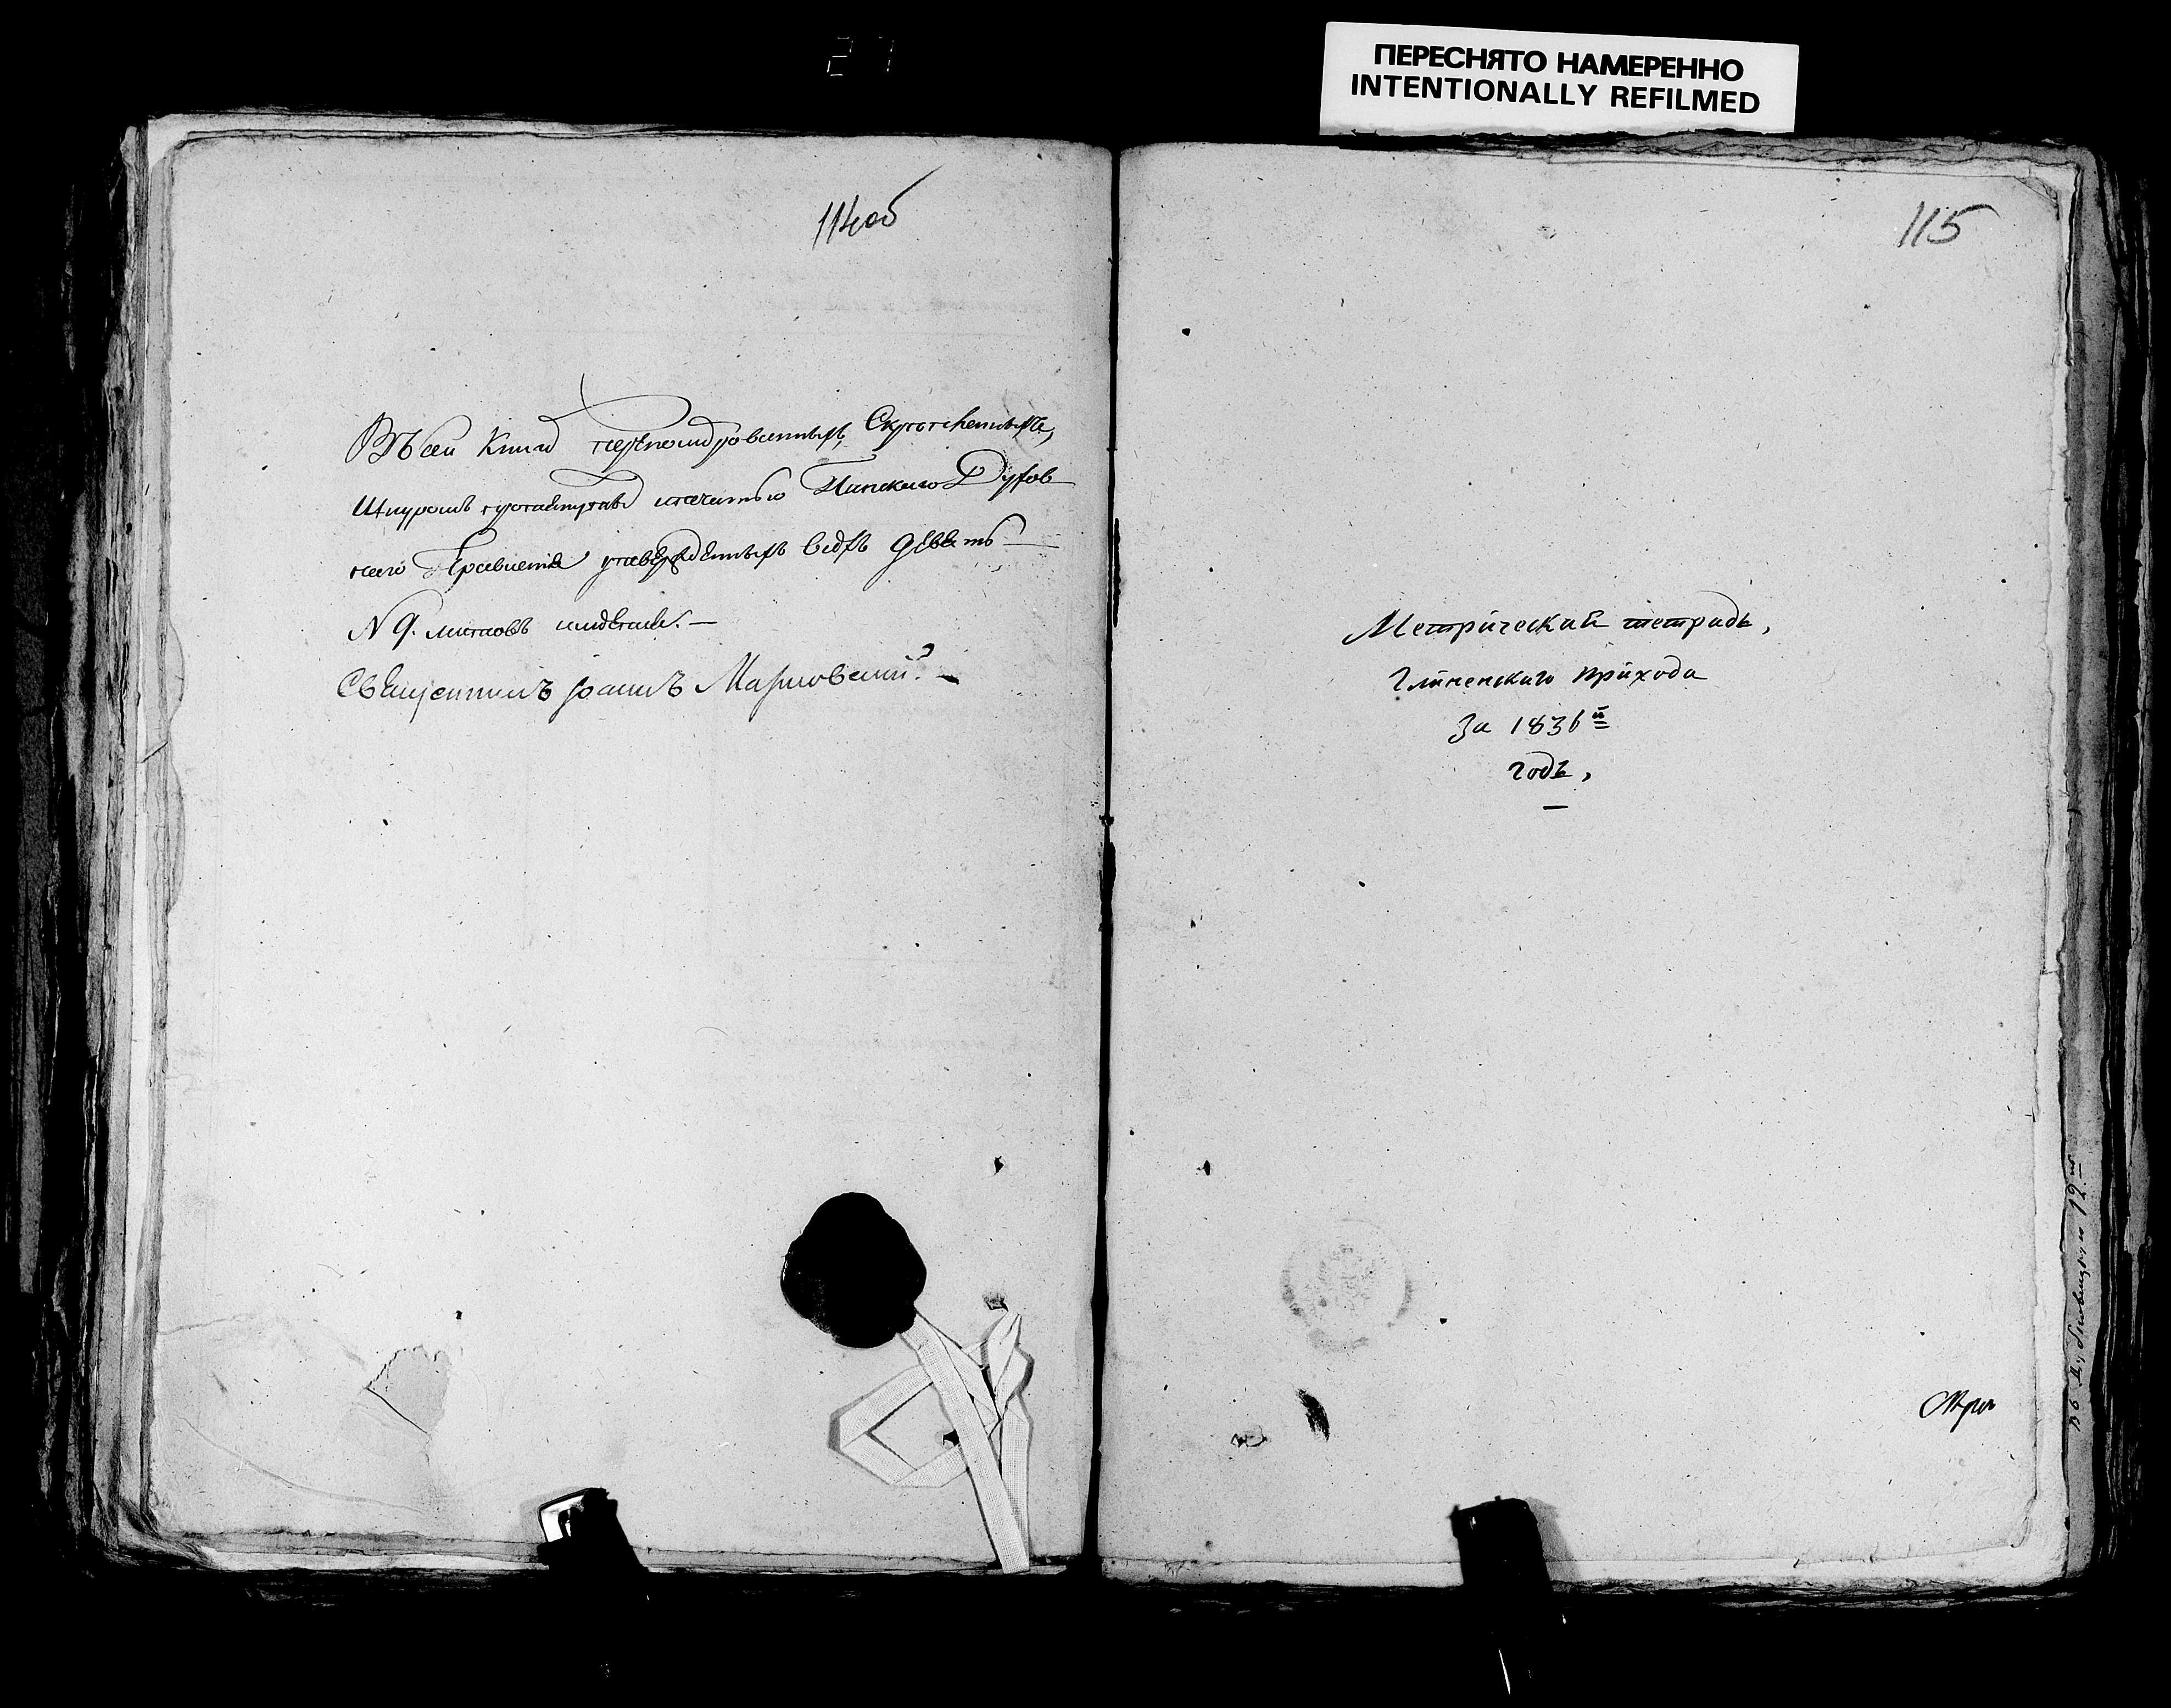 27
ПЕРЕСНЯТО НАМЕРЕННО
INTENTIONALLY REFILMED
114об
Въ сей Книгѣ перенумерованныхъ, Скрепленныхъ,
Шнуромъ протянутыхъ и печатью Пинскаго Духов
наго Правленія утвержденныхъ всѣхъ девять
N 9. листовъ
Священникъ Іоаннъ
115
Метрическая тетрадь,
Глиненскаго прихода
За 1836й
годъ,